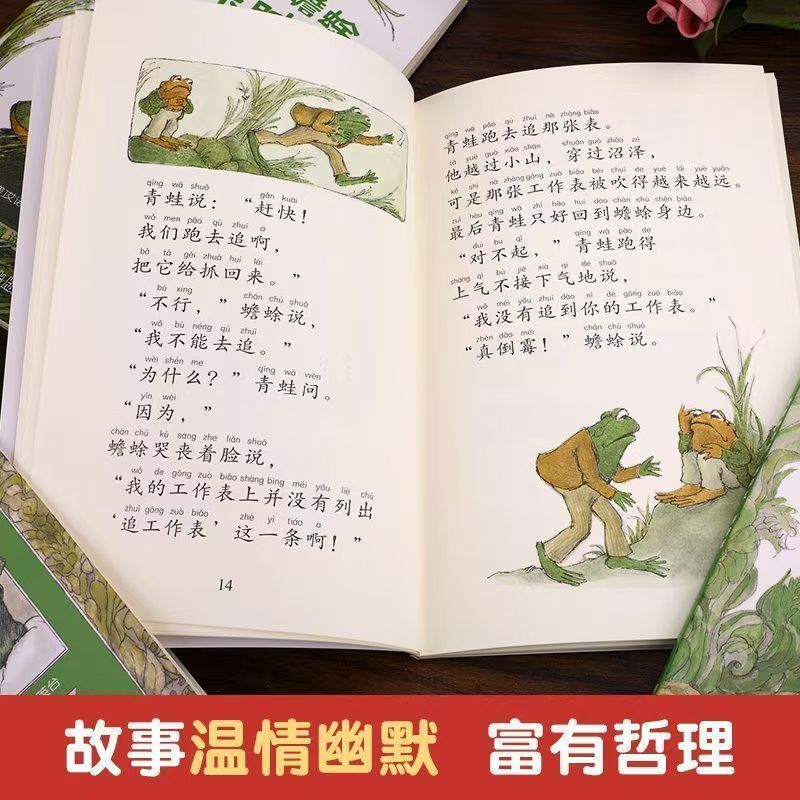 蟾蜍
qīng wā shuō gǎn kuài
青蛙说：“赶快！
wǒ men pǎo qù zhuī a
我们跑去追啊，
bǎ tā gěi zhuā huí lái
把它给抓回来。”
bù xíng chán chú shuō
“不行，”蟾蜍说，
wǒ bù néng qù zhuī
“我不能去追。”
wèi shén me qīng wā wèn
“为什么？”青蛙问。
yīn wèi
“因为，”
chán chú kū sang zhe liǎn shuō
蟾蜍哭丧着脸说，
wǒ de gōng zuò biǎo shàng bìng méi yǒu liè chū
“我的工作表上并没有列出
zhuī gōng zuò biǎo zhè yì tiáo a
‘追工作表’这一条啊！”
14
qīng wā pǎo qù zhuī nà zhāng biǎo
青蛙跑去追那张表。
tā yuè guò xiǎo shān chuān guò zhǎo zé
他越过小山，穿过沼泽，
kě shì nà zhāng gōng zuò biǎo bèi chuī de yuè lái yuè yuǎn
可是那张工作表被吹得越来越远。
zuì hòu qīng wā zhǐ hǎo huí dào chán chú shēn biān
最后青蛙只好回到蟾蜍身边。
duì bu qǐ qīng wā pǎo de
“对不起，”青蛙跑得
shàng qì bù jiē xià qì de shuō
上气不接下气地说，
wǒ méi yǒu zhuī dào nǐ de gōng zuò biǎo
“我没有追到你的工作表。”
zhēn dǎo méi chán chú shuō
“真倒霉！”蟾蜍说。
英台
故事温情幽默 富有哲理